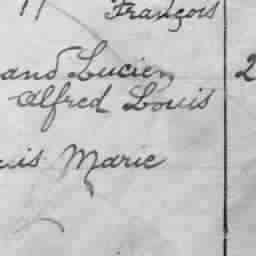 François
and Lucien 2
Alfred Louis
uis Marie